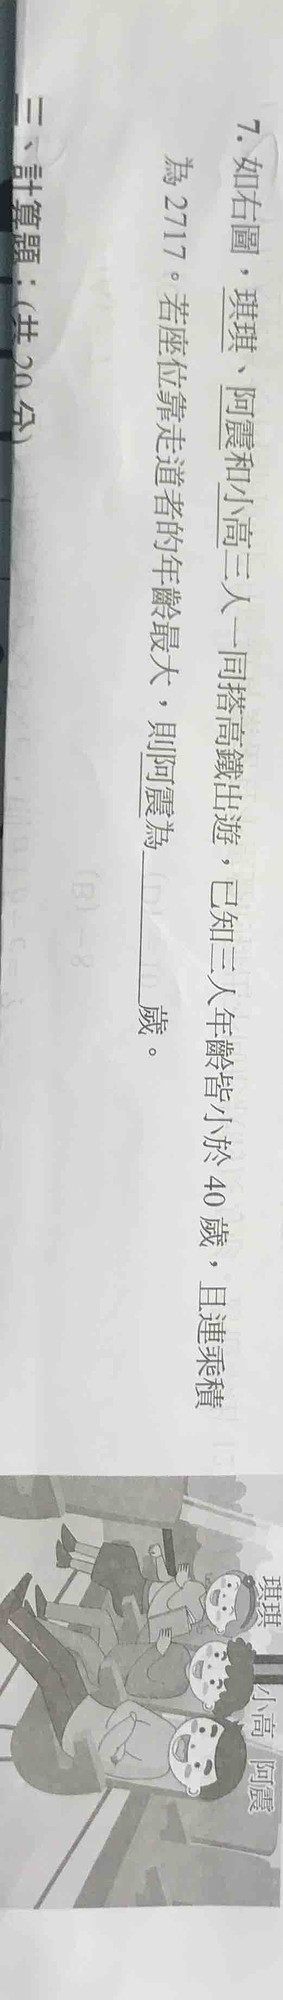 7. 如右圖，琪琪、阿震和小高三人一同搭高鐵出遊，已知三人年齡皆小於 40 歲，且連乘積
為 2717。若座位靠走道者的年齡最大，則阿震為＿＿＿＿歲。
琪琪 小高 阿震
三、計算題：(共 20 分)